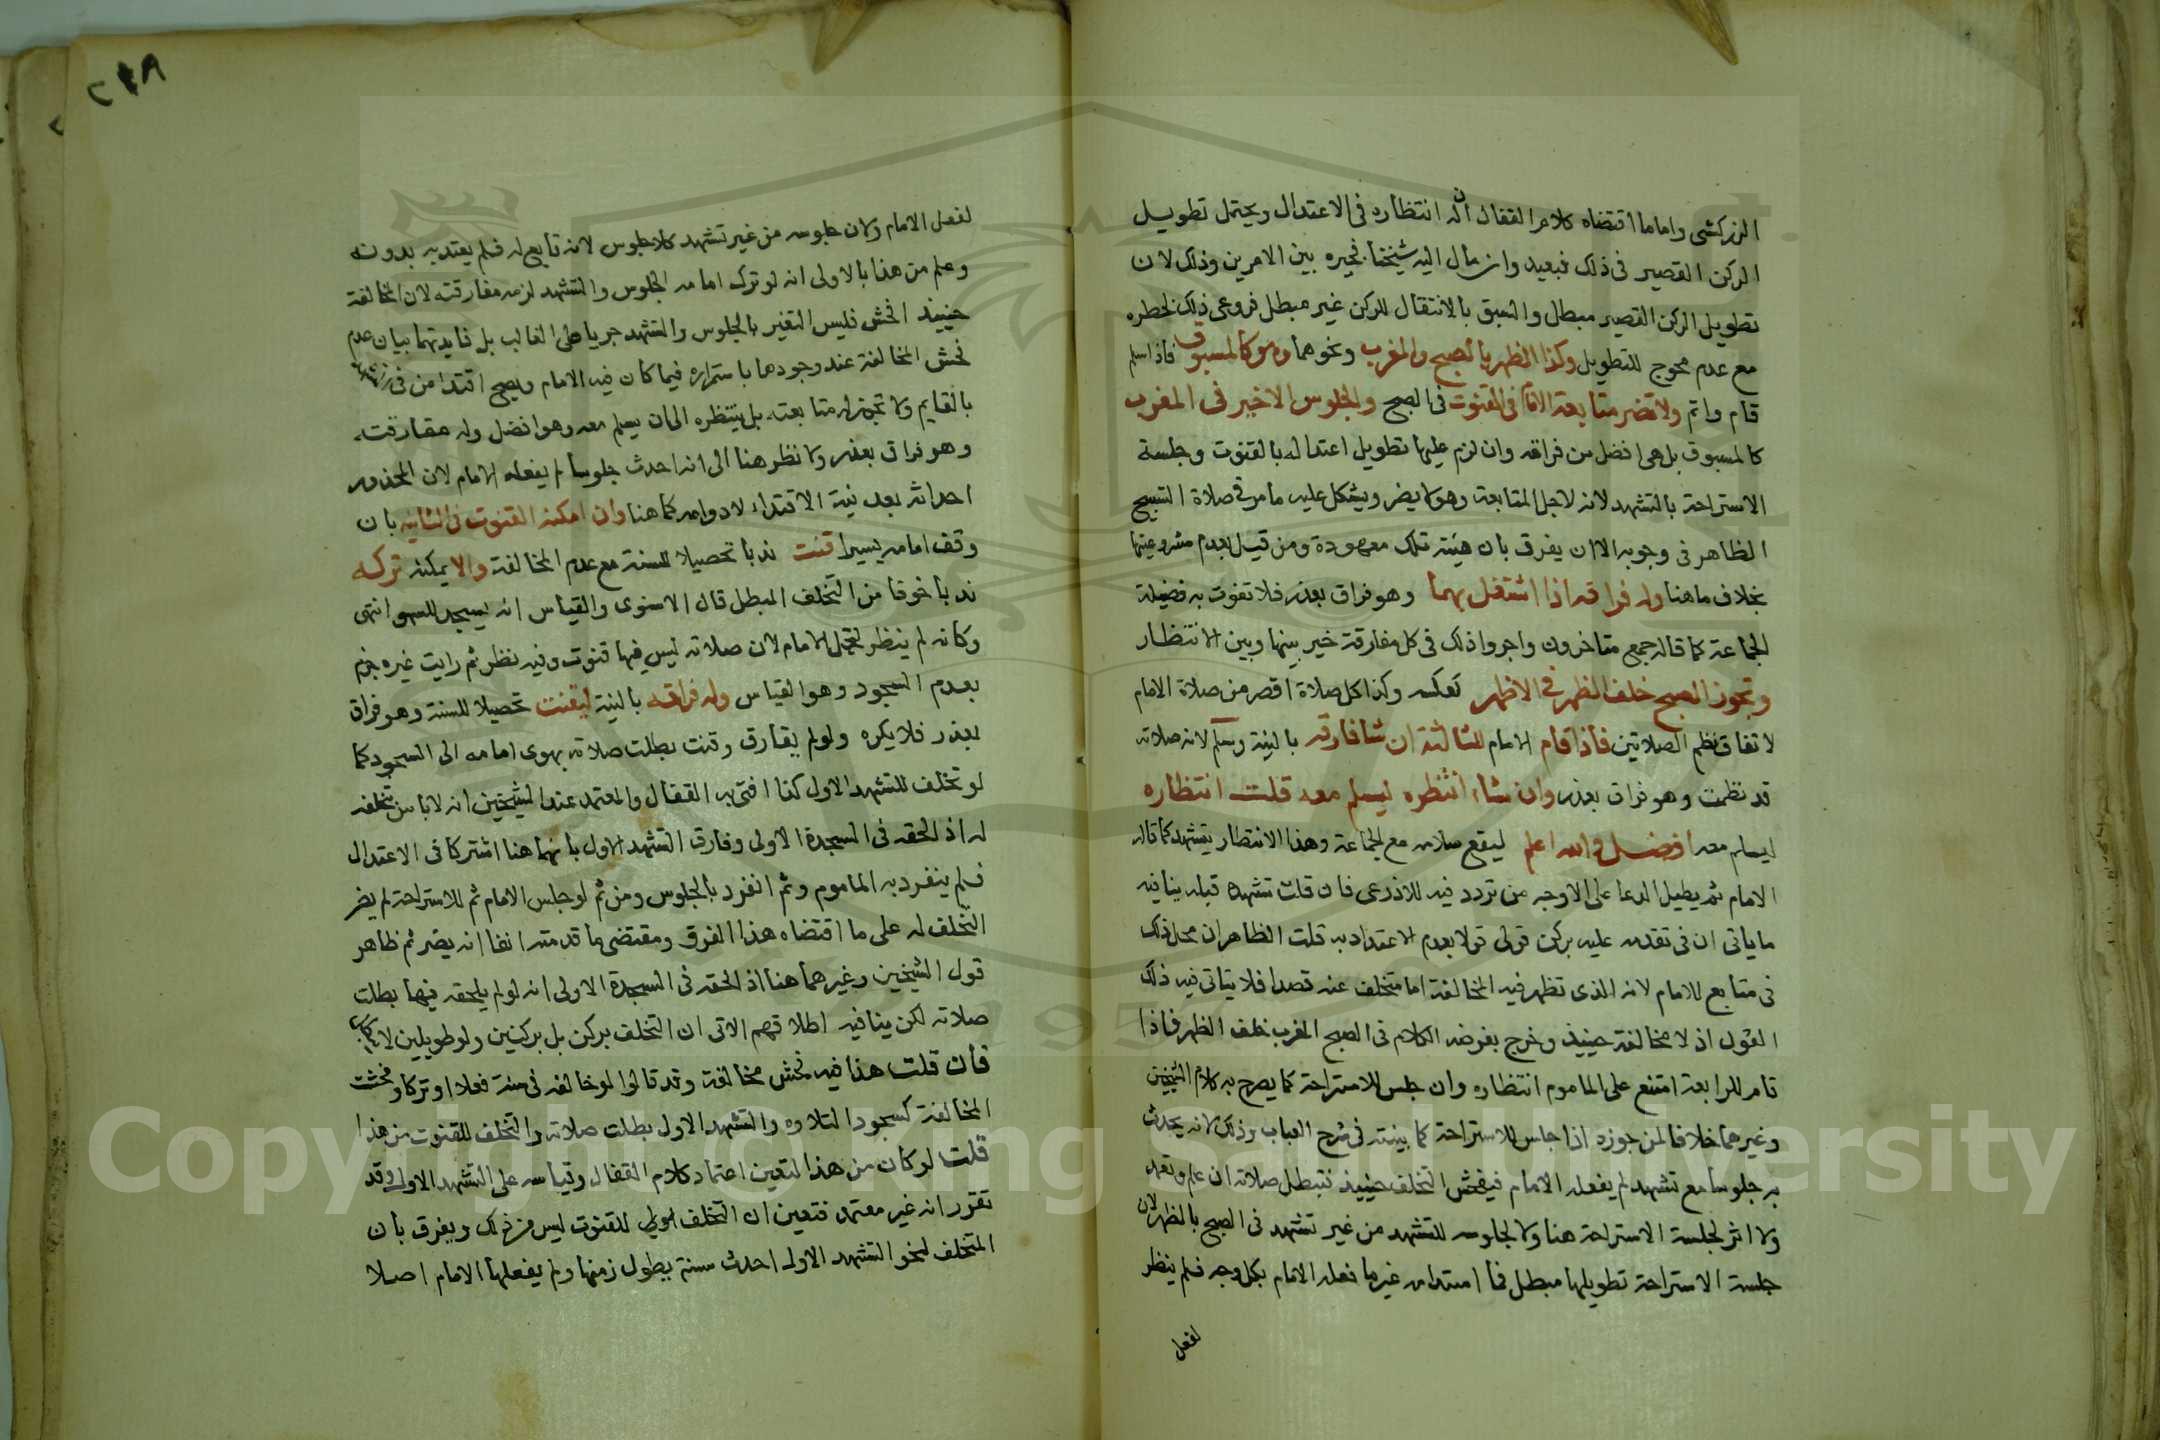 الزركشى واماما اقتضاه كلام القفال ان له انتظاره فى الاعتدال ويحتمل تطويل
الركن القصير فى ذلك فبعيد وان مال اليه شيخنا فخيره بين الامرين وذلك لان
تطويل الركن القصير مبطل والسبق بالانتقال للركن غير مبطل فروعى ذلك لخطره
مع عدم محوج للتطويل وكذا الظهر بالصبح والمغرب ونحوهما وهو كالمسبوق فاذا سلم
قام واتم ولا تضر متابعة الامام فى القنوت فى الصبح والجلوس الاخير فى المغرب
كالمسبوق بل هى افضل من فراقه وان لزم عليها تطويل اعتداله بالقنوت وجلسة
الاستراحة بالتشهد لانه لاجل المتابعة وهو لا يضر ويشكل عليه ما مر فى صلاة التسبيح
الظاهر فى وجوبه الا ان يفرق بان هيئة تلك معهودة ومن قيل بعدم مشروعيتها
بخلاف ما هنا وله فراقه اذا اشتغل بهما وهو فراق بعذر فلا تفوت به فضيلة
الجماعة كما قاله جمع متاخرون واجروا ذلك فى كل مفارقة خير بينها وبين الانتظار
وتجوز الصبح خلف الظهر فى الاظهر كعكسه وكذا كل صلاة اقصر من صلاة الامام
لاتفاق نظم الصلاتين فاذا قام الامام للثالثة ان شا فارقه بالنية وسلم لانه صلاته
قد تطمت وهو فراق بعذر وان شاء انتظره ليسلم معه قلت انتظاره
ليسلم معه افضل والله اعلم ليقع سلامه مع الجماعة وهذا الانتظار يتشهد كما قاله
الامام ثم يطيل الدعا على الاوجه من تردد فيه للاذرعى فان قلت تشهده قبله ينافيه
ما ياتى ان فى تقدمه عليه بركن قولى قولا بعدم الاعتداد به قلت الظاهر ان محل ذلك
فى متابع للامام لانه الذى تظهر فيه المخالفة اما متخلف عنه قصدا فلا يتاتى فيه ذلك
القول اذ لا مخالفة حينيذ وخرج بفرضه الكلام فى الصبح المغرب خلف الظهر فاذا
قام للرابعة امتنع على الماموم انتظاره وان جلس للاستراحة كما يصرح به كلام الشيخين
وغيرهما خلافا لمن جوزه اذا جلس للاستراحة كما بينته فى شرح العباب وذلك لانه يحدث
به جلوسا مع تشهد لم يفعله الامام فيفحش التخلف حينيذ فتبطل صلاته ان علم وتعمد
ولا اثر لجلسة الاستراحة هنا ولا لجلوسه للتشهد من غير تشهد فى الصبح بالظهر لان
جلسة الاستراحة تطويلها مبطل فما استدامه غير ما فعله الامام بكل وجه فلم ينظر
لفعل
لفعل الامام ولان جلوسه من غير تشهد كلا جلوس لانه تابع له فلم يعتد به بدونه
وعلم من هذا بالاولى انه لو ترك امامه الجلوس والتشهد لزمه مفارقته لان المخالفة
حينيذ افحش فليس التعبير بالجلوس والتشهد جريا على الغالب بل فايدتهما بيان عدم
فحش المخالفة عند وجودهما باستمراره فيما كان فيه الامام ويصح اقتدا من فى
بالقايم ولا تجوز له متابعته بل ينتظره الى ان يسلم معه وهو افضل وله مفارقته
وهو فراق بعذر ولا نظر هنا الى انه احدث جلوسا لم يفعله الامام لان المحذور
احداثه بعد نية الاقتداء لا دوامه كما هنا وان امكنه القنوت فى الثانية بان
وقف امامه يسيرا قنت ندبا تحصيلا للسنة مع عدم المخالفة والا يمكنه تركه
ندبا خوفا من التخلف المبطل قال الاسنوى والقياس انه يسجد للسهو انتهى
وكانه لم ينظر لتحمل الامام لان صلاته ليس فيها قنوت وفيه نظر ثم رايت غيره جزم
بعدم السجود وهو القياس وله فراقه بالنية ليقنت تحصيلا للسنة وهو فراق
بعذر فلا يكره ولو لم يفارق وقنت بطلت صلاته بهوى امامه الى السجود كما
لو تخلف للتشهد الاول كذا افتى به القفال والمعتمد عند الشيخين انه لا باس بتخلفه
له اذا لحقه فى السجدة الاولى وفارق التشهد الاول بانهما هنا اشتركا فى الاعتدال
فلم ينفرد به الماموم وثم انفرد بالجلوس ومن ثم لو جلس الامام ثم للاستراحة لم يضر
التخلف له على ما اقتضاه هذا الفرق ومقتضى ما قدمته انفا انه يضر ثم ظاهر
قول الشيخين وغيرهما هنا اذا لحقه فى السجدة الاولى انه لو لم يلحقه فيها بطلت
صلاته لكن ينافيه اطلاقهم الاتى ان التخلف بركن بل بركنين ولو طويلين لا
فان قلت هذا فيه فحش مخالفة وقد قالوا لو خالفه فى سنة فعلا او تركا وفحشت
المخالفة كسجود التلاوه والتشهد الاول بطلت صلاته والتخلف للقنوت من هذا
قلت لو كان من هذا لتعين اعتماد كلام القفال وقياسه على التشهد الاول وقد
تقرر انه غير معتمد فتعين ان التخلف للقنوت ليس من ذلك ويفرق بان
المتخلف لنحو التشهد الاول احدث سنة يطول زمنها ولم يفعلها الامام اصلا
Copyright © King Saud University